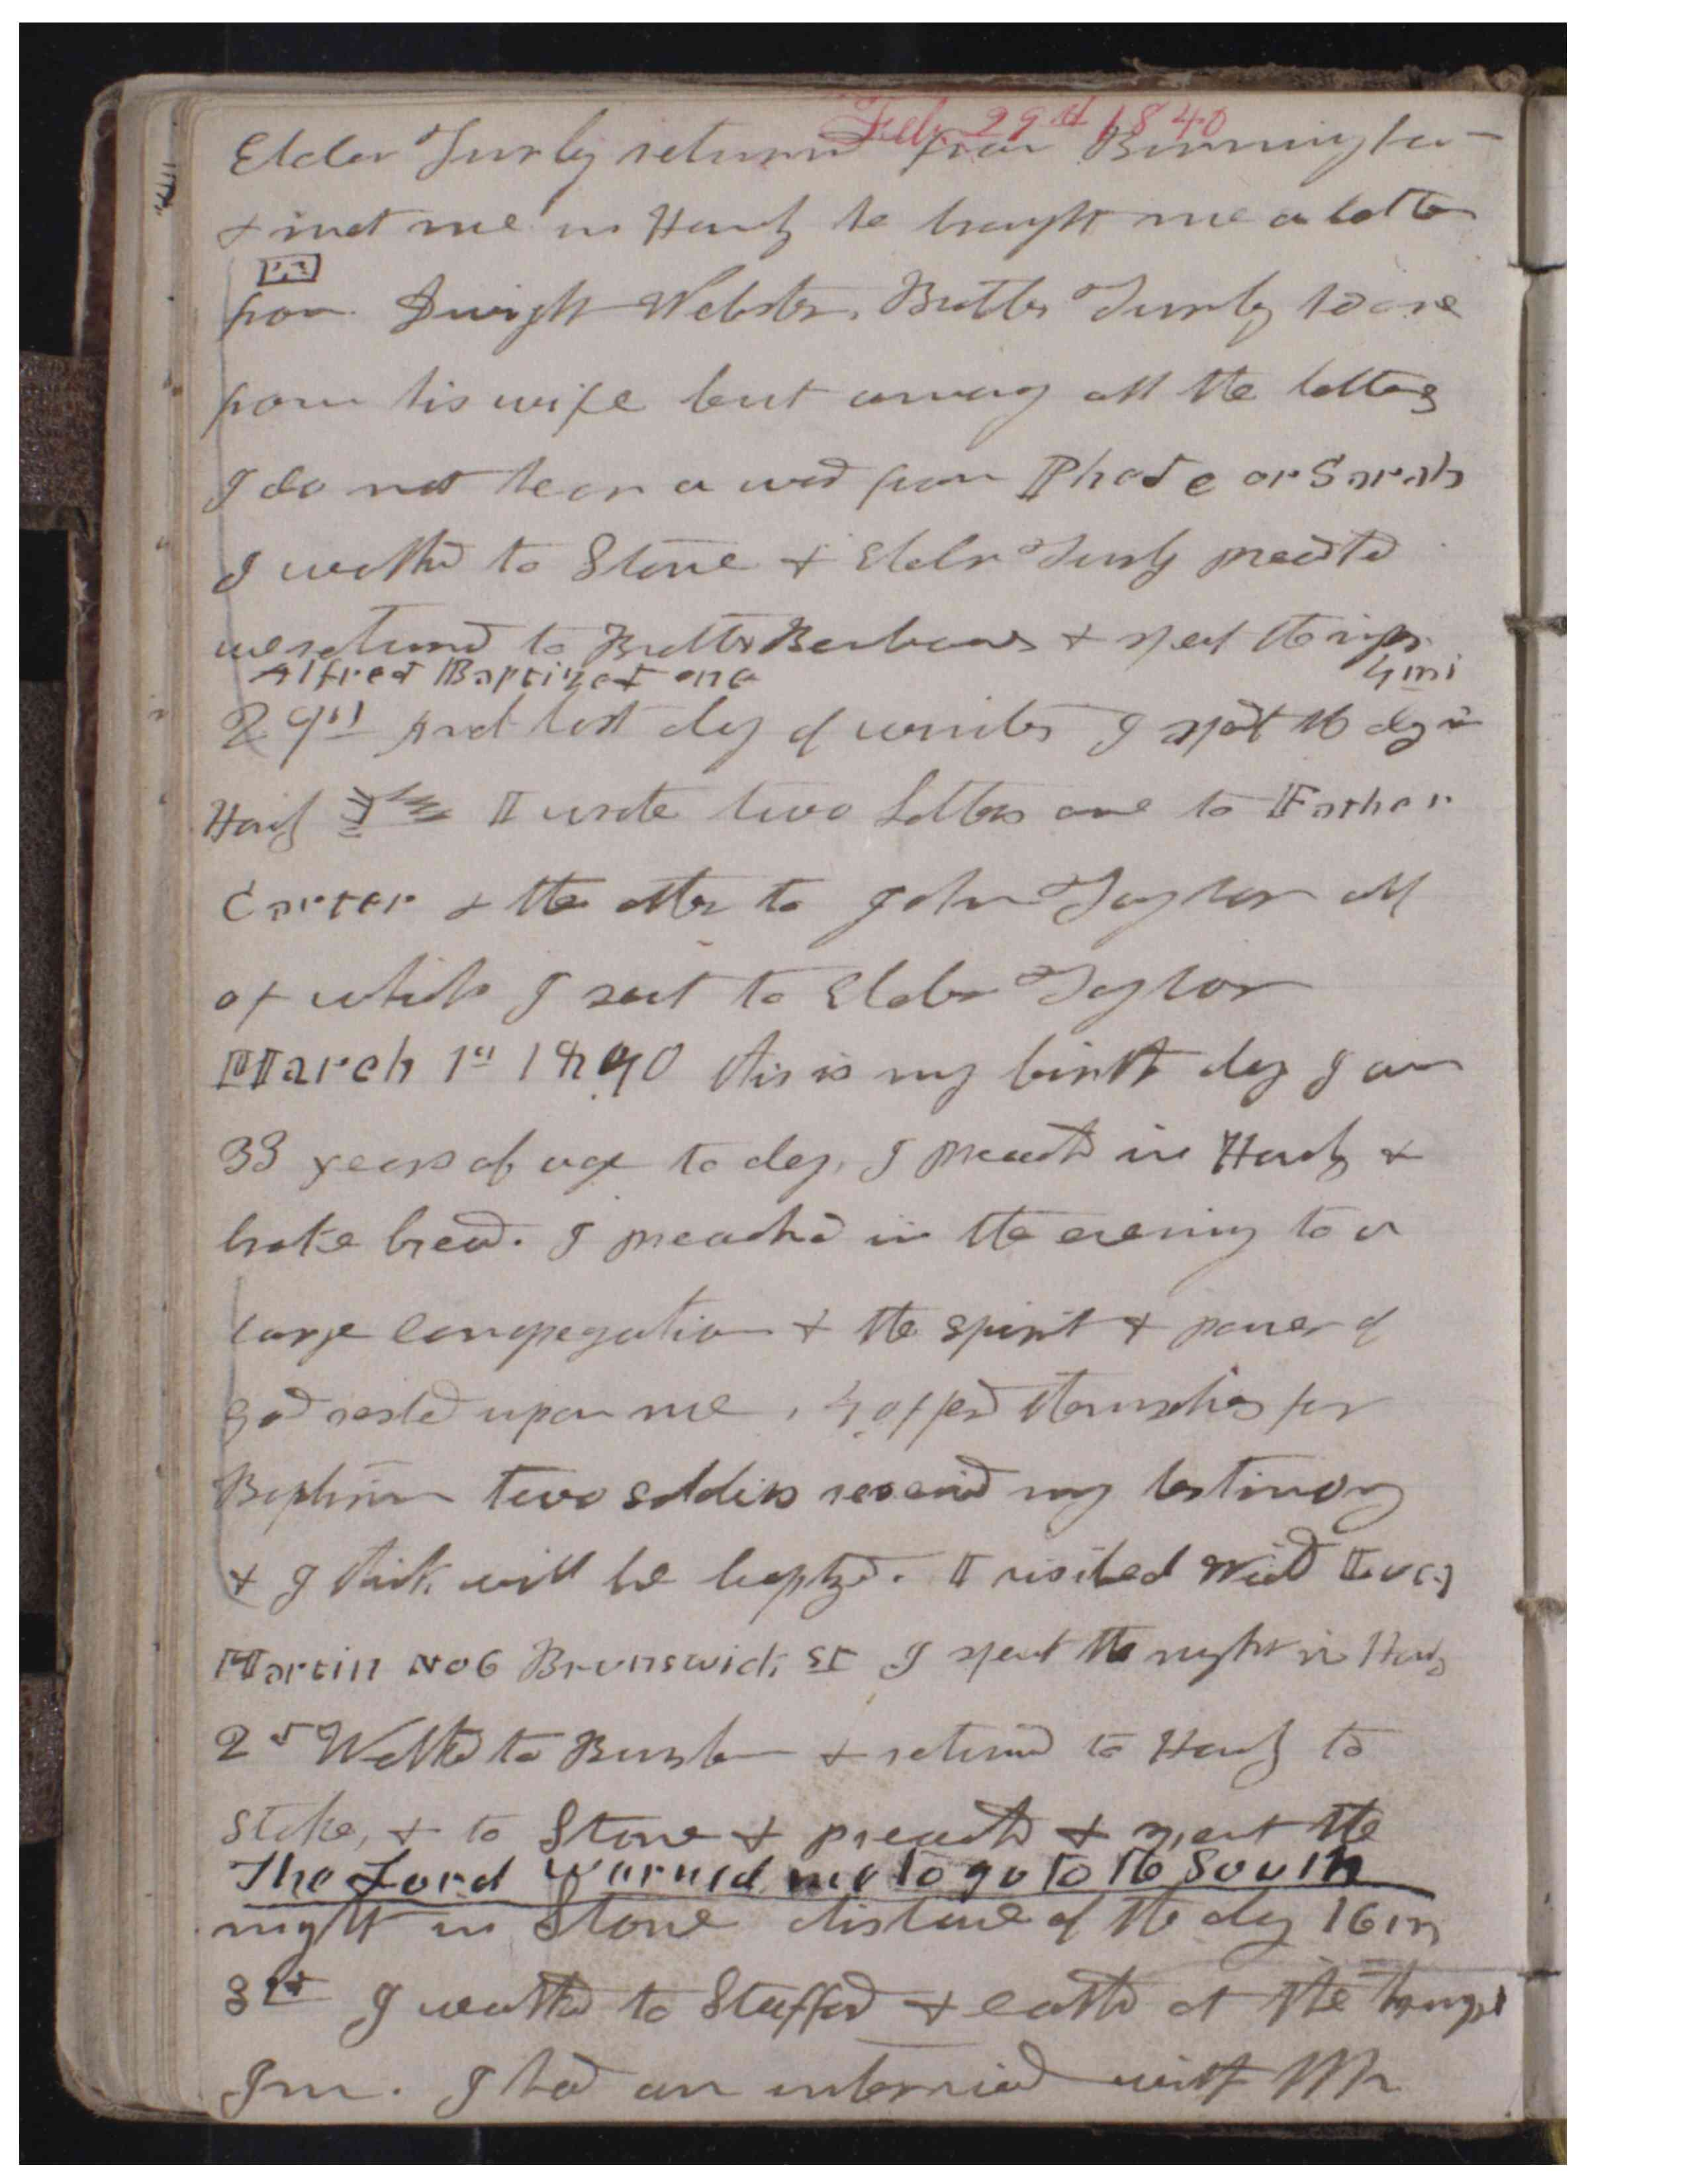 Feb. 29th 1840
Elder Turly returned from Birmingham
& met me in Hanly he brought me a letter
from Dwight Webster, Brother Turly to one
from his wife but among all the letters
I do not hear a word from Phebe or Sarah
I walked to Stone & Elder Turly preached
we returned to Brother Benbows & spent the night
Alfred Baptized one 4 mi
29th And last day of winter I spent the day in
Hanly I wrote two letters one to Father
Carter & the other to John Taylor all
of which I sent to Elder Taylor
March 1st 1840 this is my birth day I am
33 years of age to day, I preached in Hanly &
broke bread. I preached in the evening to a
large congregation & the spirit & power of
God rested upon me, 4 offered themselves for
Baptism two soldiers received my testimony
& I think will be baptized. I visited Lucy
Martin No 6 Brunswick St I spent the night in Hanly
2d Walked to Burslem & returned to Hanly to
Stoke, & to Stone & preached & spent the
The Lord warned me to go to the South
night in Stone distance of the day 16 m
3rd I walked to Stafford & called at the
Inn. I had an interview with Mr